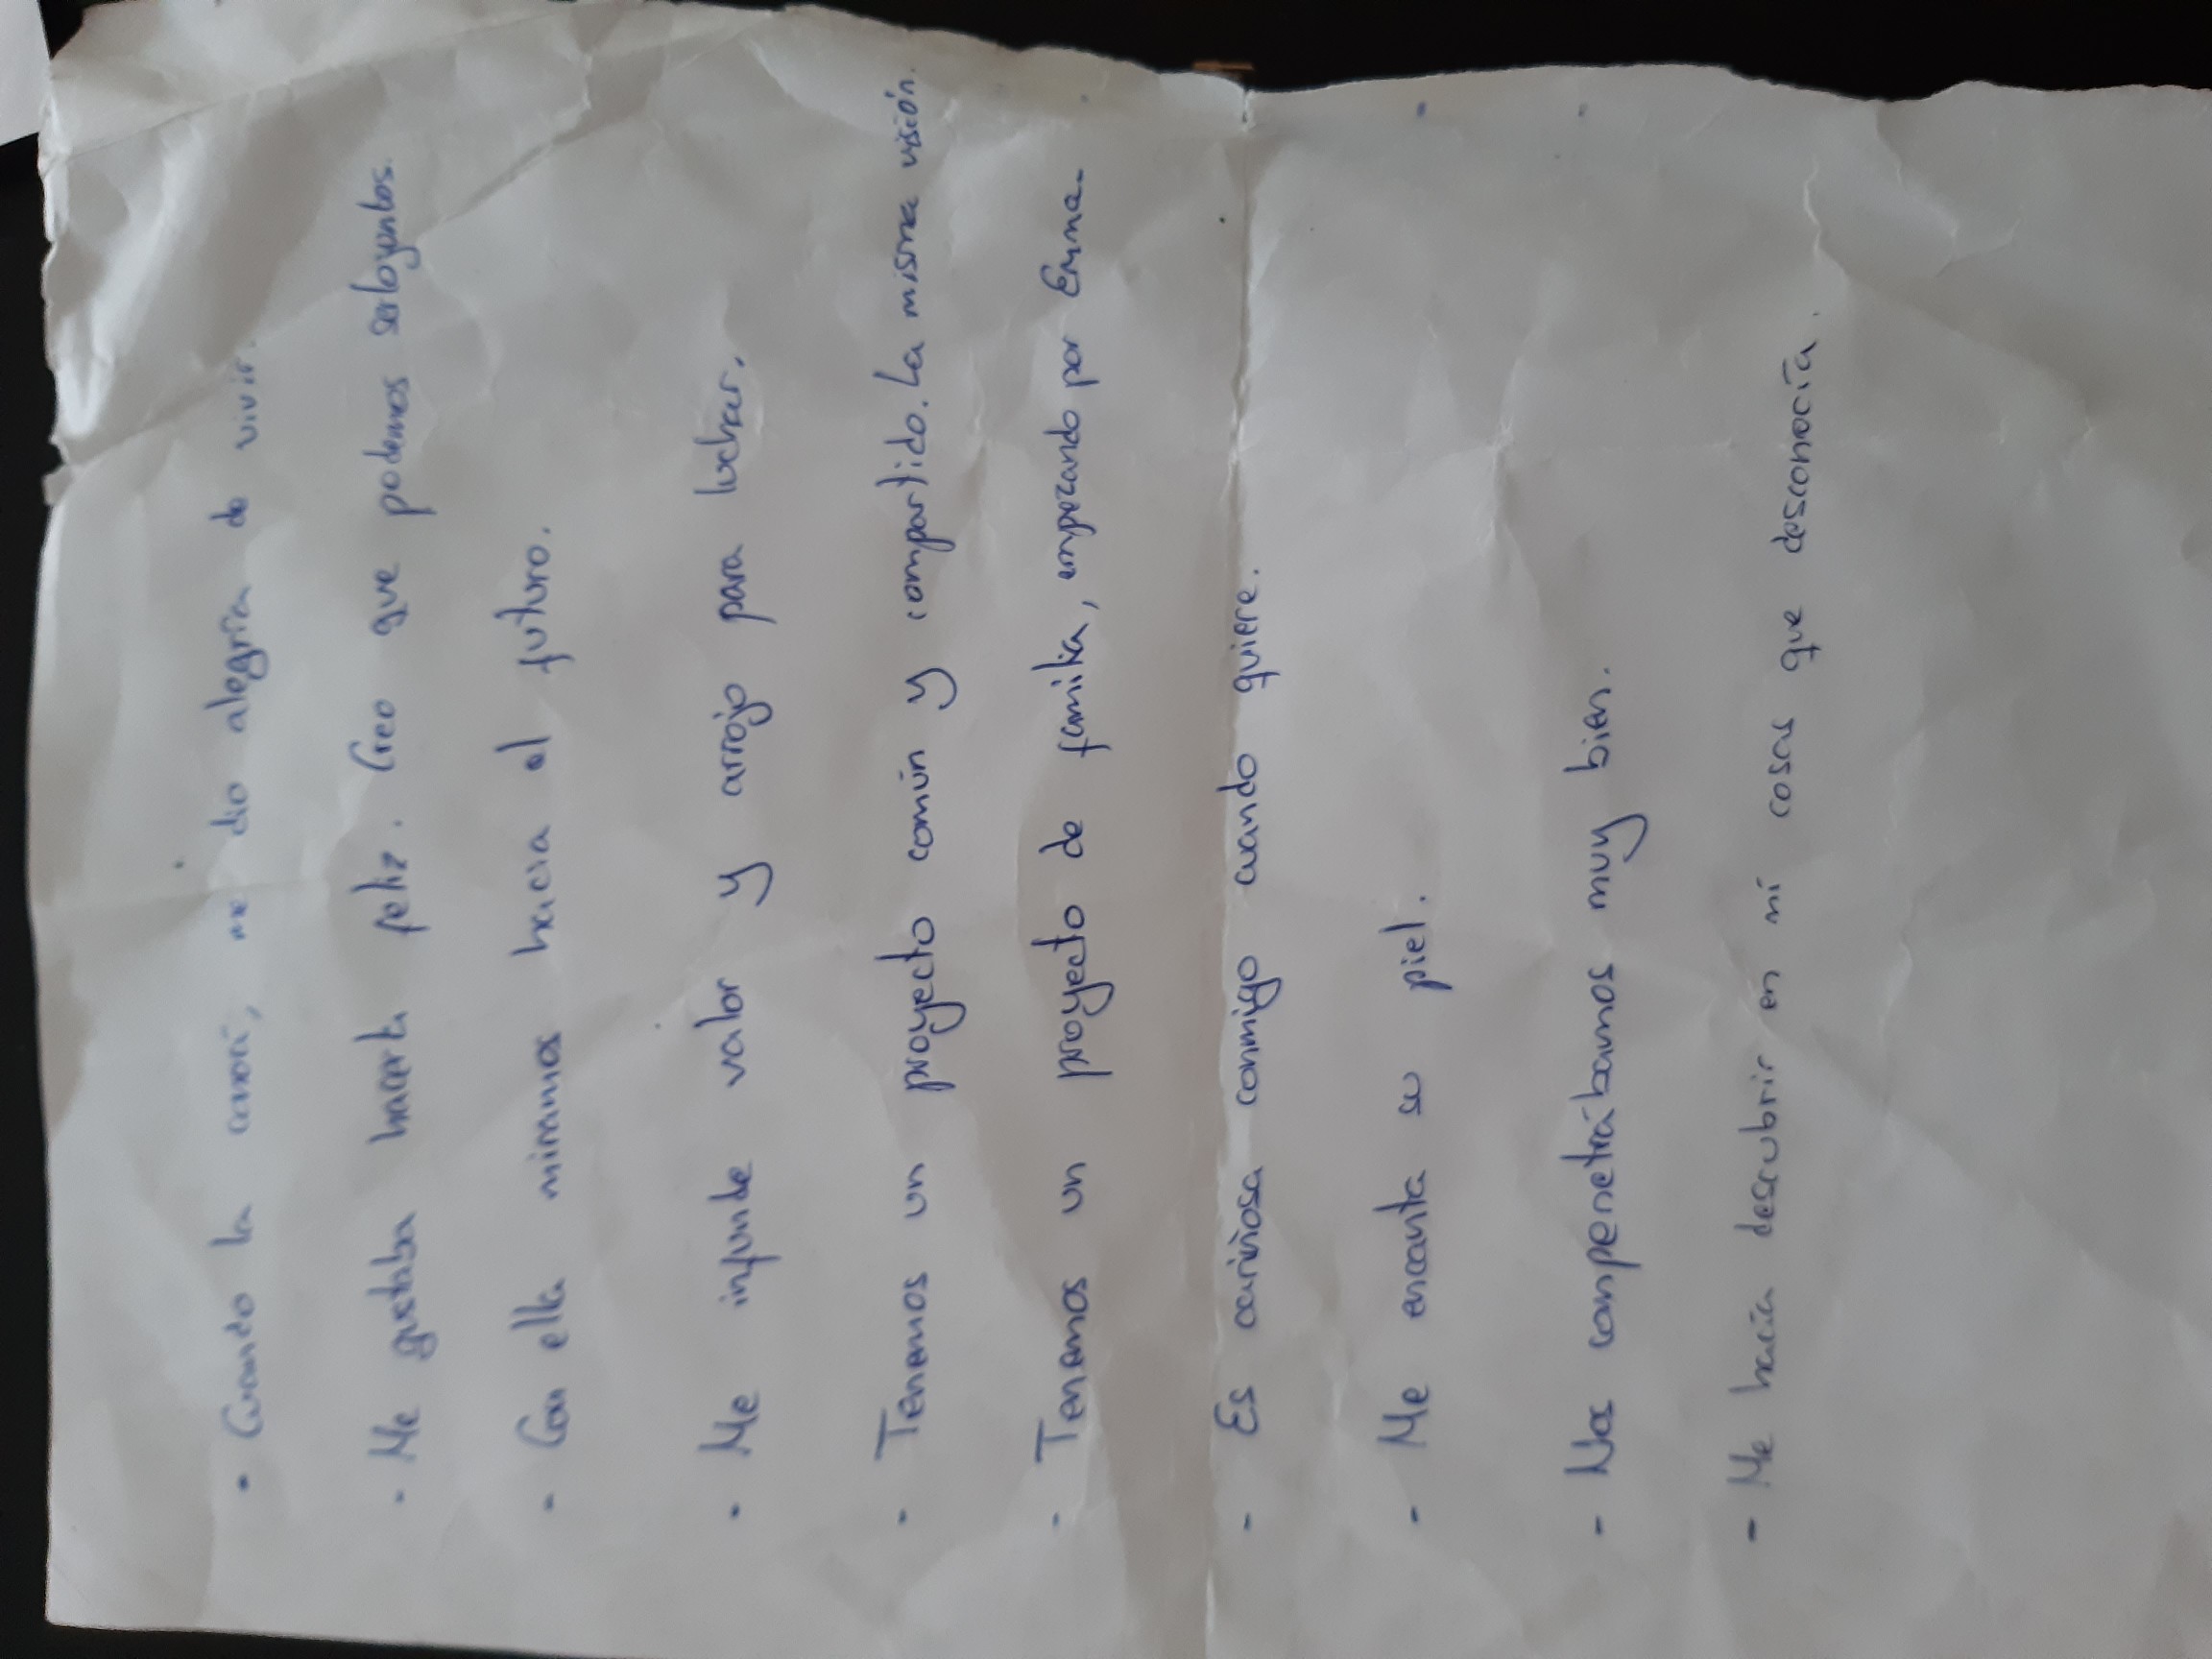 - Cuando la conocí, me dio alegría de vivir.
- Me gustaba hacerla feliz. Creo que podemos serlo juntos.
- Con ella miramos hacia el futuro.
- Me infunde valor y arrojo para luchar.
- Tenemos un proyecto común y compartido. La misma visión.
- Tenemos un proyecto de familia, empezando por Emma.
- Es cariñosa conmigo cuando quiere.
- Me encanta su piel.
- Nos compenetrábamos muy bien.
- Me hacía descubrir en mí cosas que desconocía.